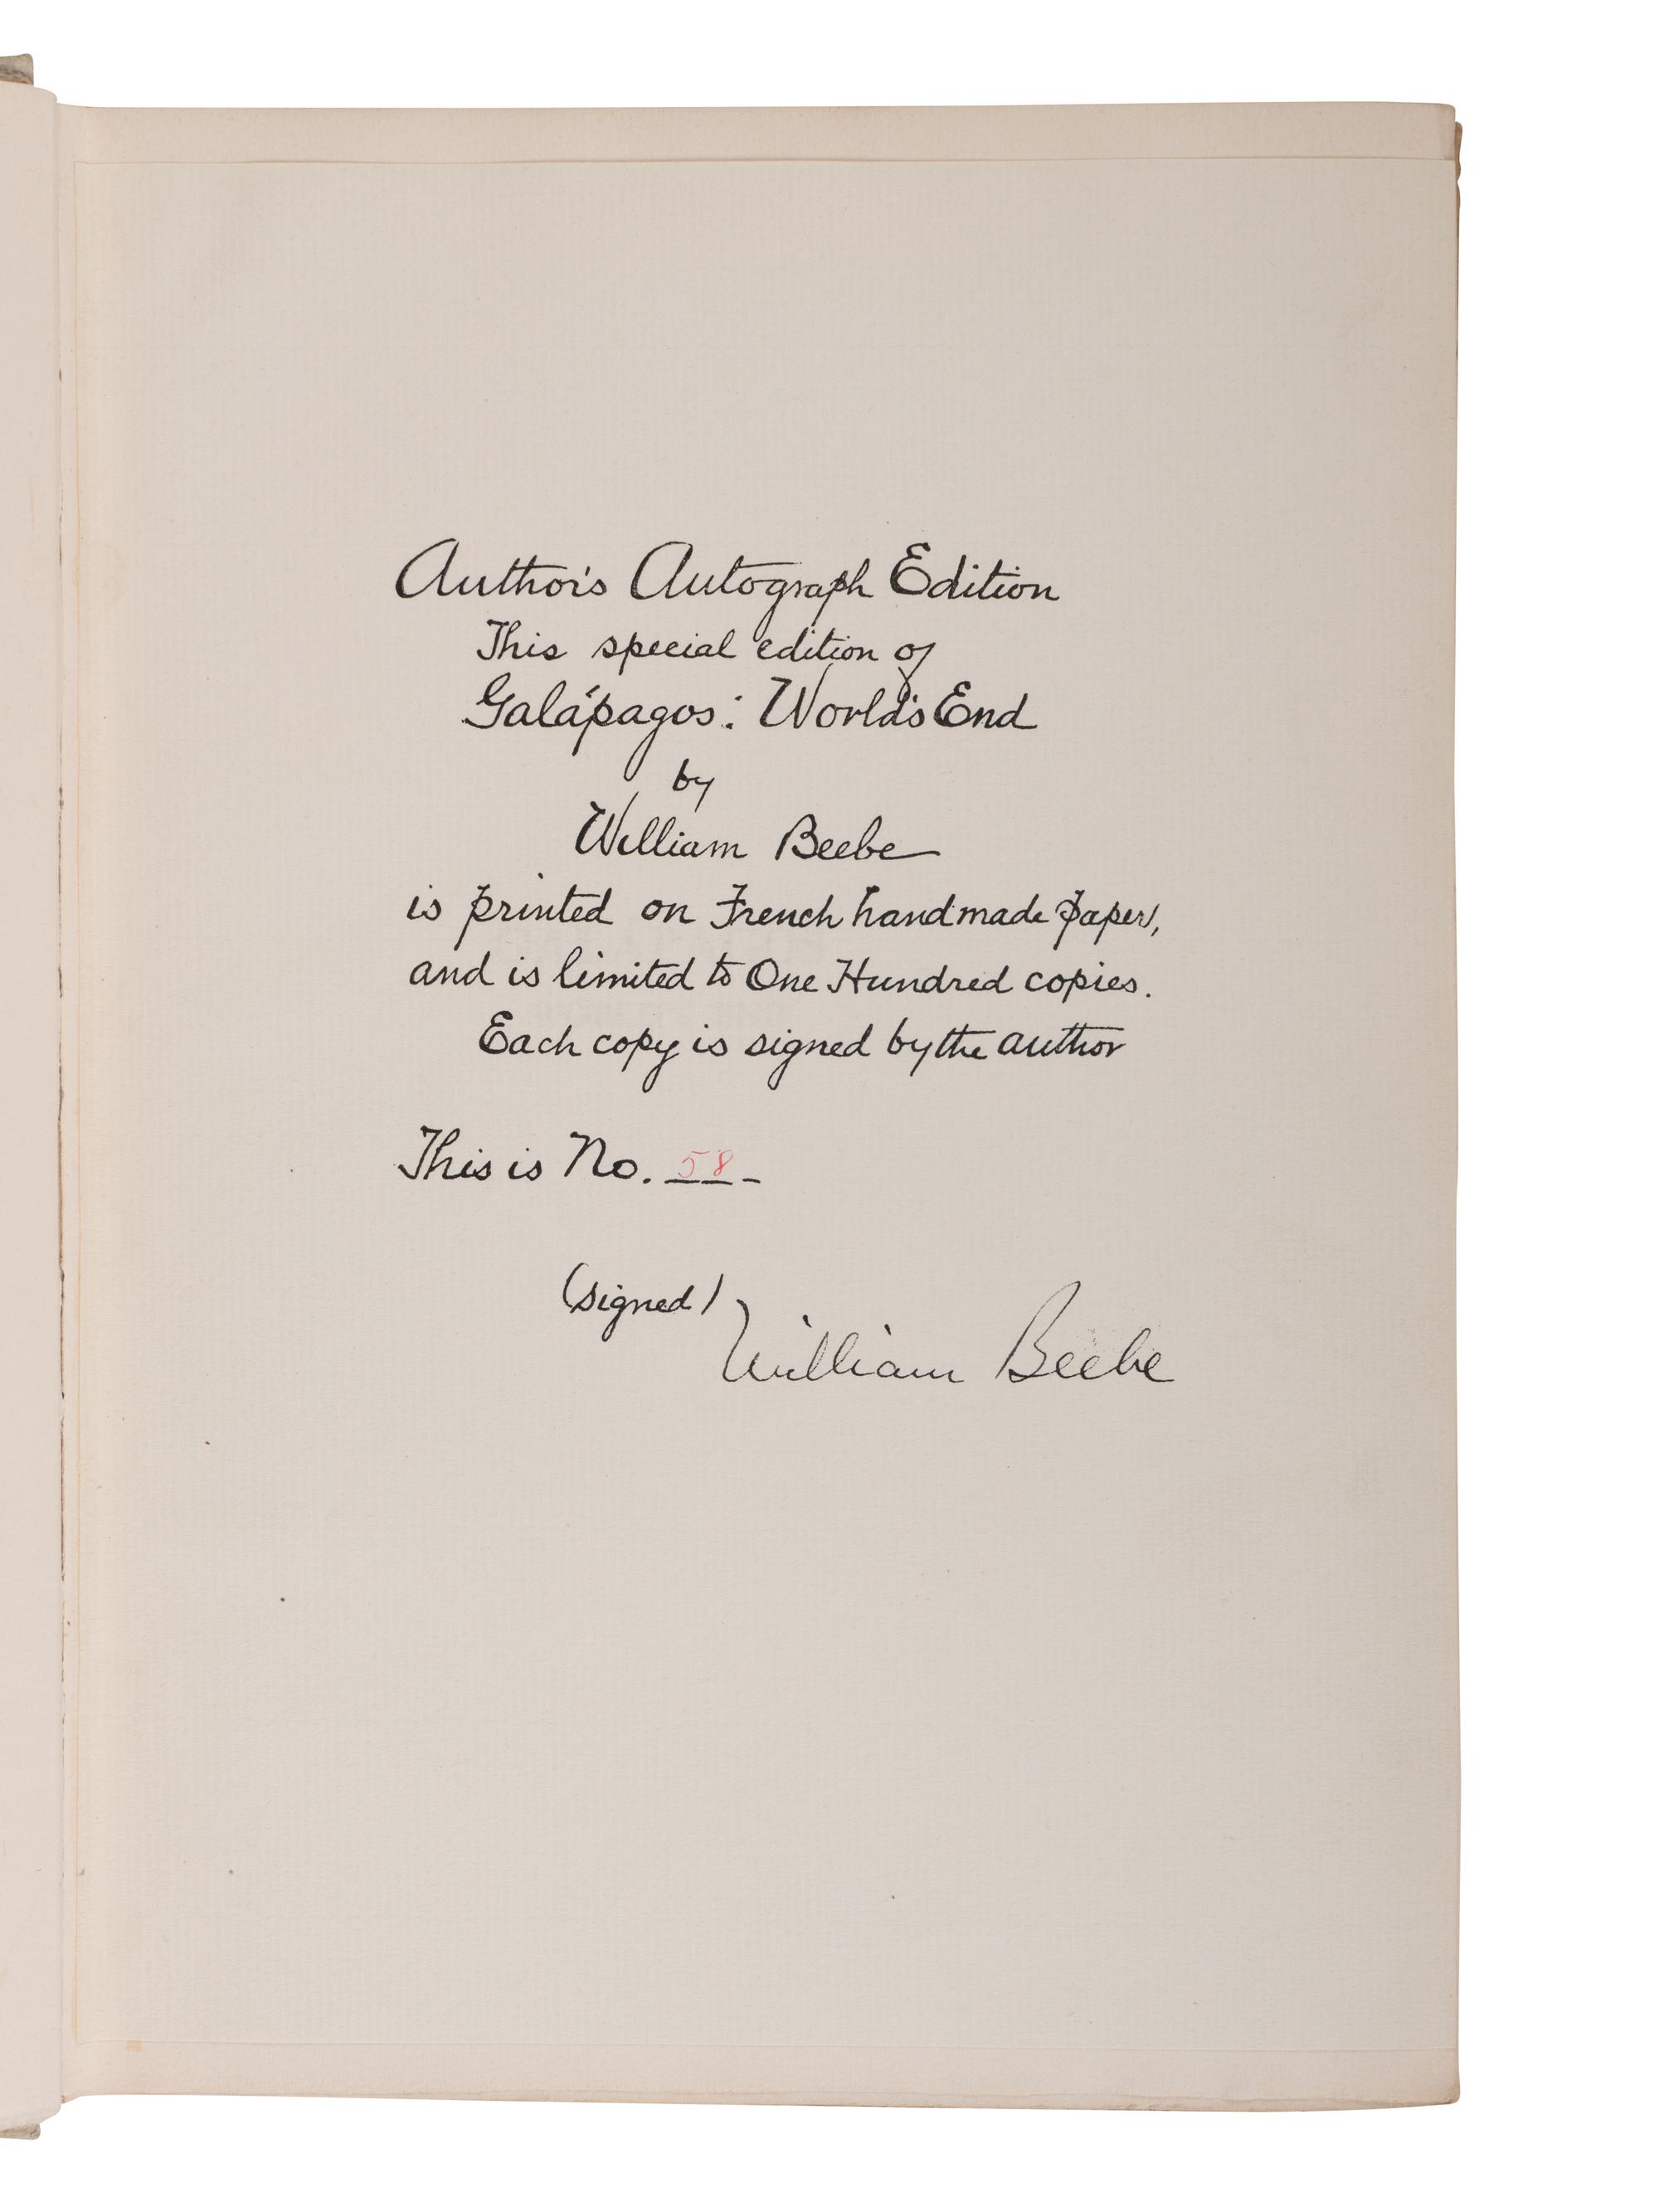 Author's Autograph Edition
This special edition of
Galápagos: World's End
by
William Beebe
is printed on French handmade paper,
and is limited to One Hundred copies.
Each copy is signed by the author
This is No. 58
(signed)
William Beebe